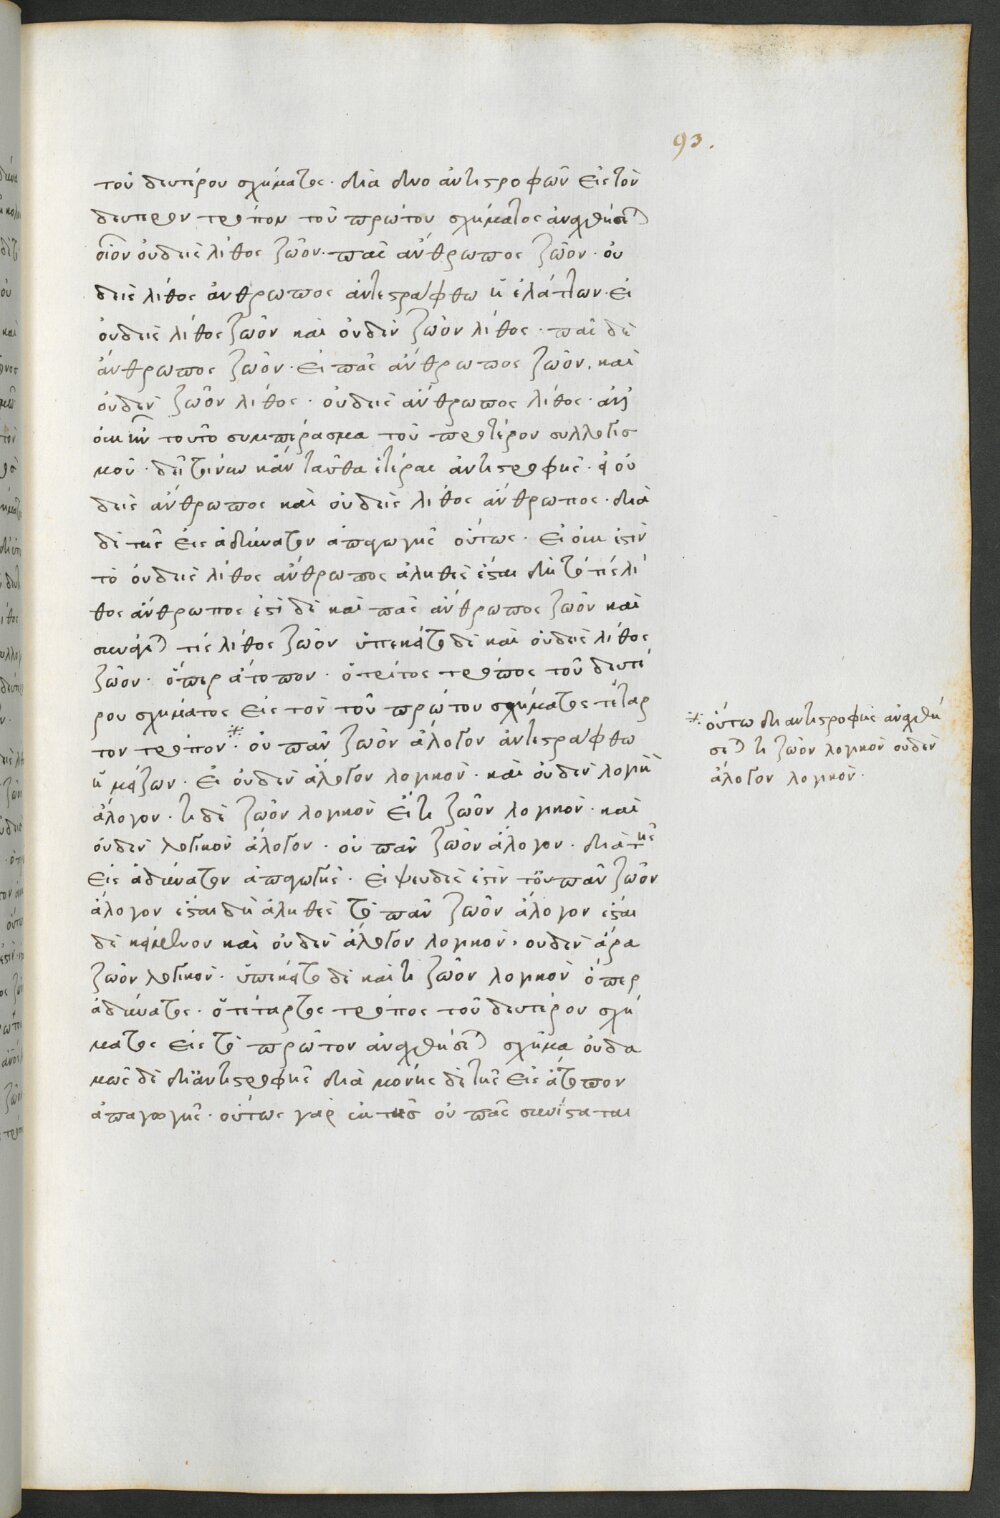 93.
τοῦ δευτέρου σχήματος· διὰ δύο ἀντιστροφῶν εἰς τὸν
δεύτερον τρόπον τοῦ πρώτου σχήματος ἀναχθήσεται
οἷον οὐδεὶς λίθος ζῶον· πᾶς ἄνθρωπος ζῶον· οὐ
δεὶς λίθος ἄνθρωπος ἀντεστράφθω ἡ ἐλάττων· εἰ
οὐδεὶς λίθος ζῶον καὶ οὐδὲν ζῶον λίθος· πᾶς δὲ
ἄνθρωπος ζῶον· εἰ πᾶς ἄνθρωπος ζῶον, καὶ
οὐδὲν ζῶον λίθος· οὐδεὶς ἄνθρωπος λίθος· ἀλλ
οὐκ ἦν τοῦτο συμπέρασμα τοῦ προτέρου συλλογισ
μοῦ· δεῖ τοίνυν κἀνταῦθα ἑτέρας ἀντιστροφῆς· εἰ οὐ
δεὶς ἄνθρωπος καὶ οὐδεὶς λίθος ἄνθρωπος· διὰ
δὲ τῆς εἰς ἀδύνατον ἀπαγωγῆς οὕτως· εἰ οὐκ ἔστιν
τὸ οὐδεὶς λίθος ἄνθρωπος ἀληθὲς ἔσται δὴ τό τις λί
θος ἄνθρωπος ἔστι δὲ καὶ πᾶς ἄνθρωπος ζῶον καὶ
συνάγεται τὶς λίθος ζῶον ὑπέκειτο δὲ καὶ οὐδεὶς λίθος
ζῶον· ὅπερ ἄτοπον· ὁ τρίτος τρόπος τοῦ δευτέ
ρου σχήματος εἰς τὸν τοῦ πρώτου σχήματος τέταρ
τον τρόπον·※ οὐ πᾶν ζῶον ἄλογον ἀντεστράφθω
ἡ μείζων· εἰ οὐδὲν ἄλογον λογικόν· καὶ οὐδὲν λογικὸν
ἄλογον· τὶ δὲ ζῶον λογικὸν εἴ τι ζῶον λογικόν· καὶ
οὐδὲν λογικὸν ἄλογον· οὐ πᾶν ζῶον ἄλογον· διὰ τῆς
εἰς ἀδύνατον ἀπαγωγῆς· εἰ ψευδές ἐστιν τὸ οὐ πᾶν ζῶον
ἄλογον ἔσται δὴ ἀληθὲς τὸ πᾶν ζῶον ἄλογον ἔσται
δὲ κἀκεῖνον καὶ οὐδὲν ἄλογον λογικόν· οὐδὲν ἄρα
ζῶον λογικόν· ὑπέκειτο δὲ καὶ τὶ ζῶον λογικὸν ὅπερ
ἀδύνατον· ὁ τέταρτος τρόπος τοῦ δευτέρου σχή
ματος εἰς τὸ πρῶτον ἀναχθήσεται σχῆμα οὐδα
μῶς δὲ δι' ἀντιστροφῆς διὰ μόνης δὲ τῆς εἰς ἄτοπον
ἀπαγωγῆς· οὕτως γὰρ ἐκ τῆς οὐ πᾶς συνίσταται
※ οὕτω δι' ἀντιστροφῆς ἀναχθή
σεται τὶ ζῶον λογικὸν οὐδὲν
ἄλογον λογικόν·